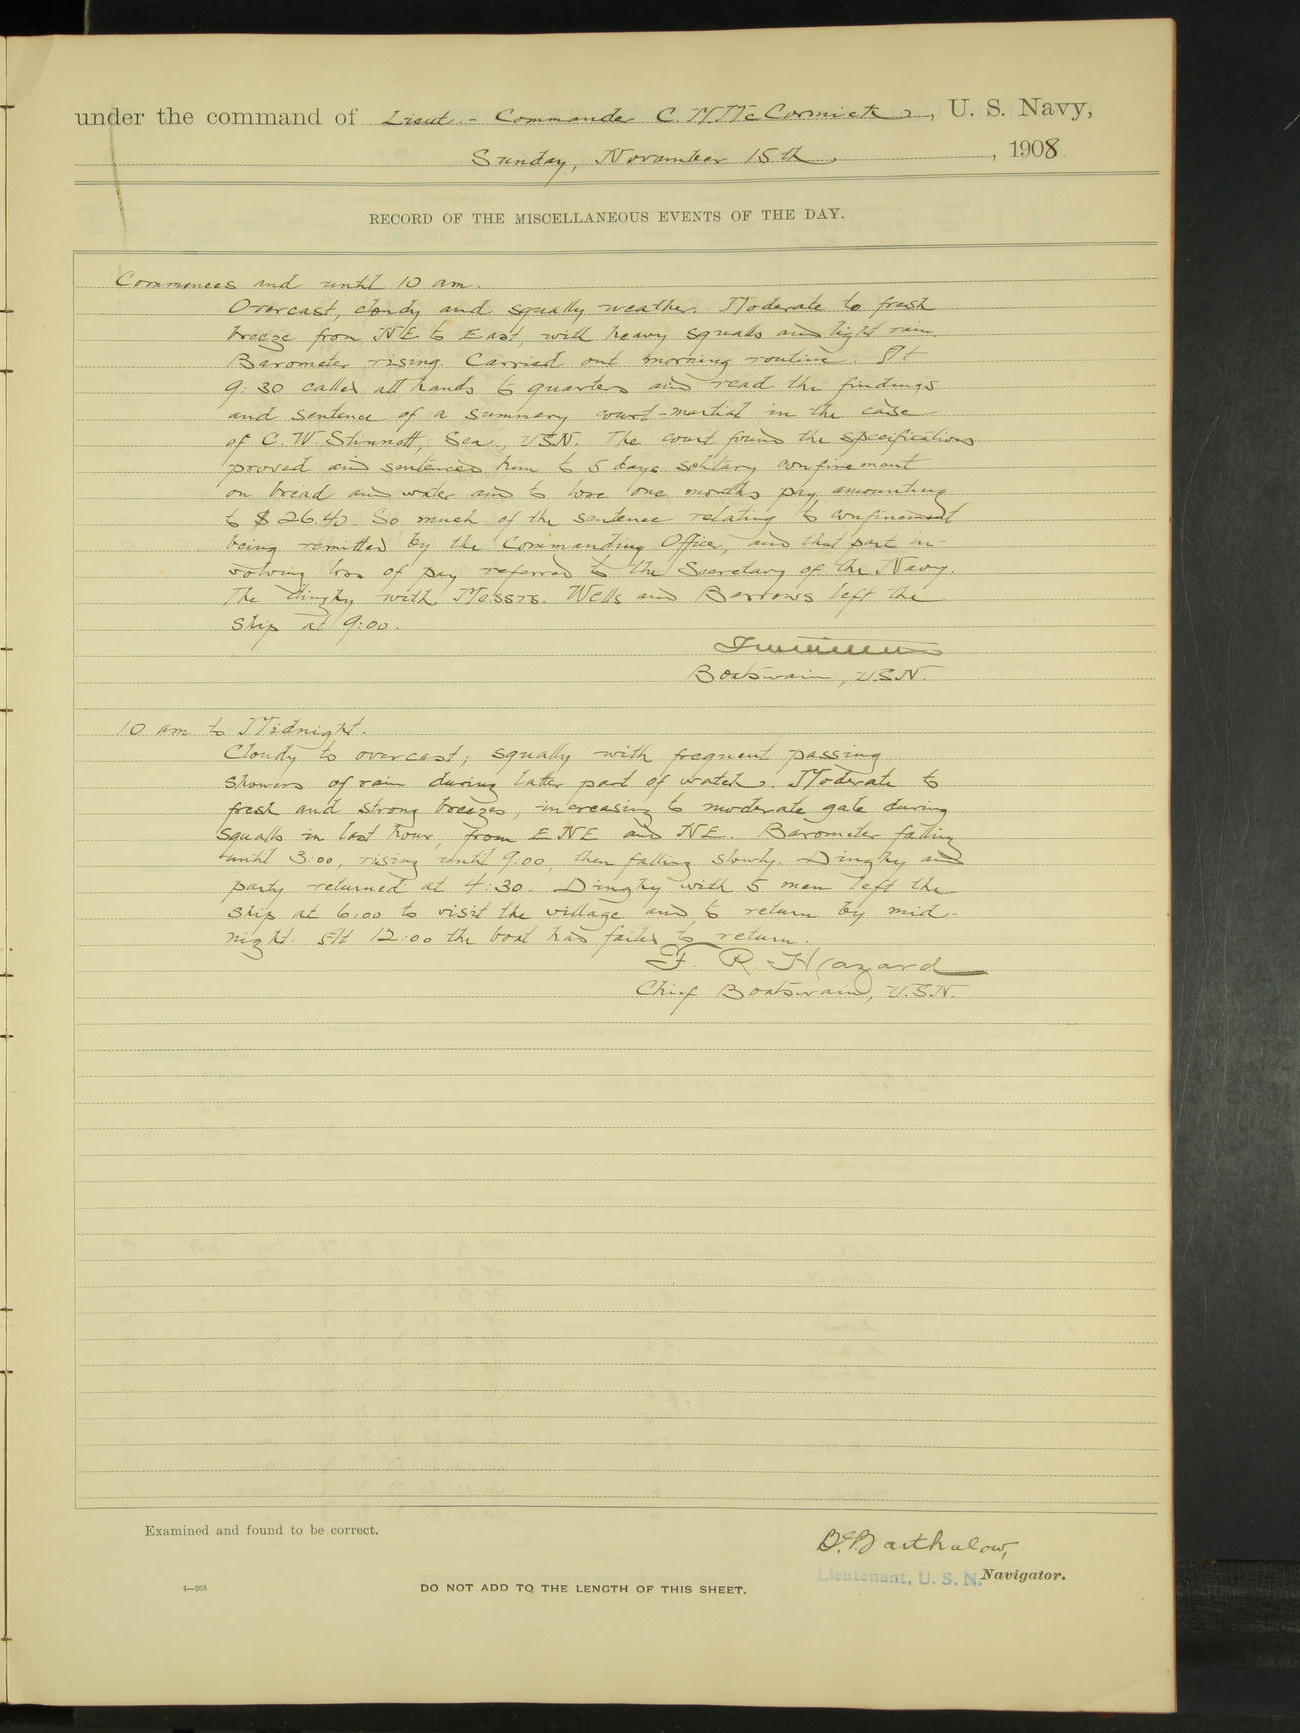 under the command of Lieut.-Commander C. M. McCormick, U. S. Navy,
Sunday, November 15th, 1908
RECORD OF THE MISCELLANEOUS EVENTS OF THE DAY.
Commences and until 10 am.
Overcast, cloudy and squally weather. Moderate to fresh
breeze from NE to East, with heavy squalls and light rain.
Barometer rising. Carried out morning routine. At
9:30 called all hands to quarters and read the findings
and sentence of a summary court-martial in the case
of C. W. Stinnett, Sea., USN. The court found the specifications
proved and sentenced him to 5 days solitary confinement
on bread and water and to lose one months pay, amounting
to $26.40. So much of the sentence relating to confinement
being remitted by the Commanding Officer, and that part in-
volving loss of pay referred to the Secretary of the Navy.
The dinghy with Messrs. Wells and Barrows left the
ship at 9:00.
Boatswain, USN.
10 am to Midnight.
Cloudy to overcast; squally with frequent passing
showers of rain during latter part of watch. Moderate to
fresh and strong breezes, increasing to moderate gale during
squalls in last hour, from ENE and NE. Barometer falling
until 3:00, rising until 9:00, then falling slowly. Dinghy and
party returned at 4:30. Dinghy with 5 men left the
ship at 6:00 to visit the village and to return by mid-
night. At 12:00 the boat had failed to return.
F. R. Hazard
Chief Boatswain, U.S.N.
Examined and found to be correct.
Barthalow,
Lieutenant, U. S. N. Navigator.
4—265
DO NOT ADD TO THE LENGTH OF THIS SHEET.